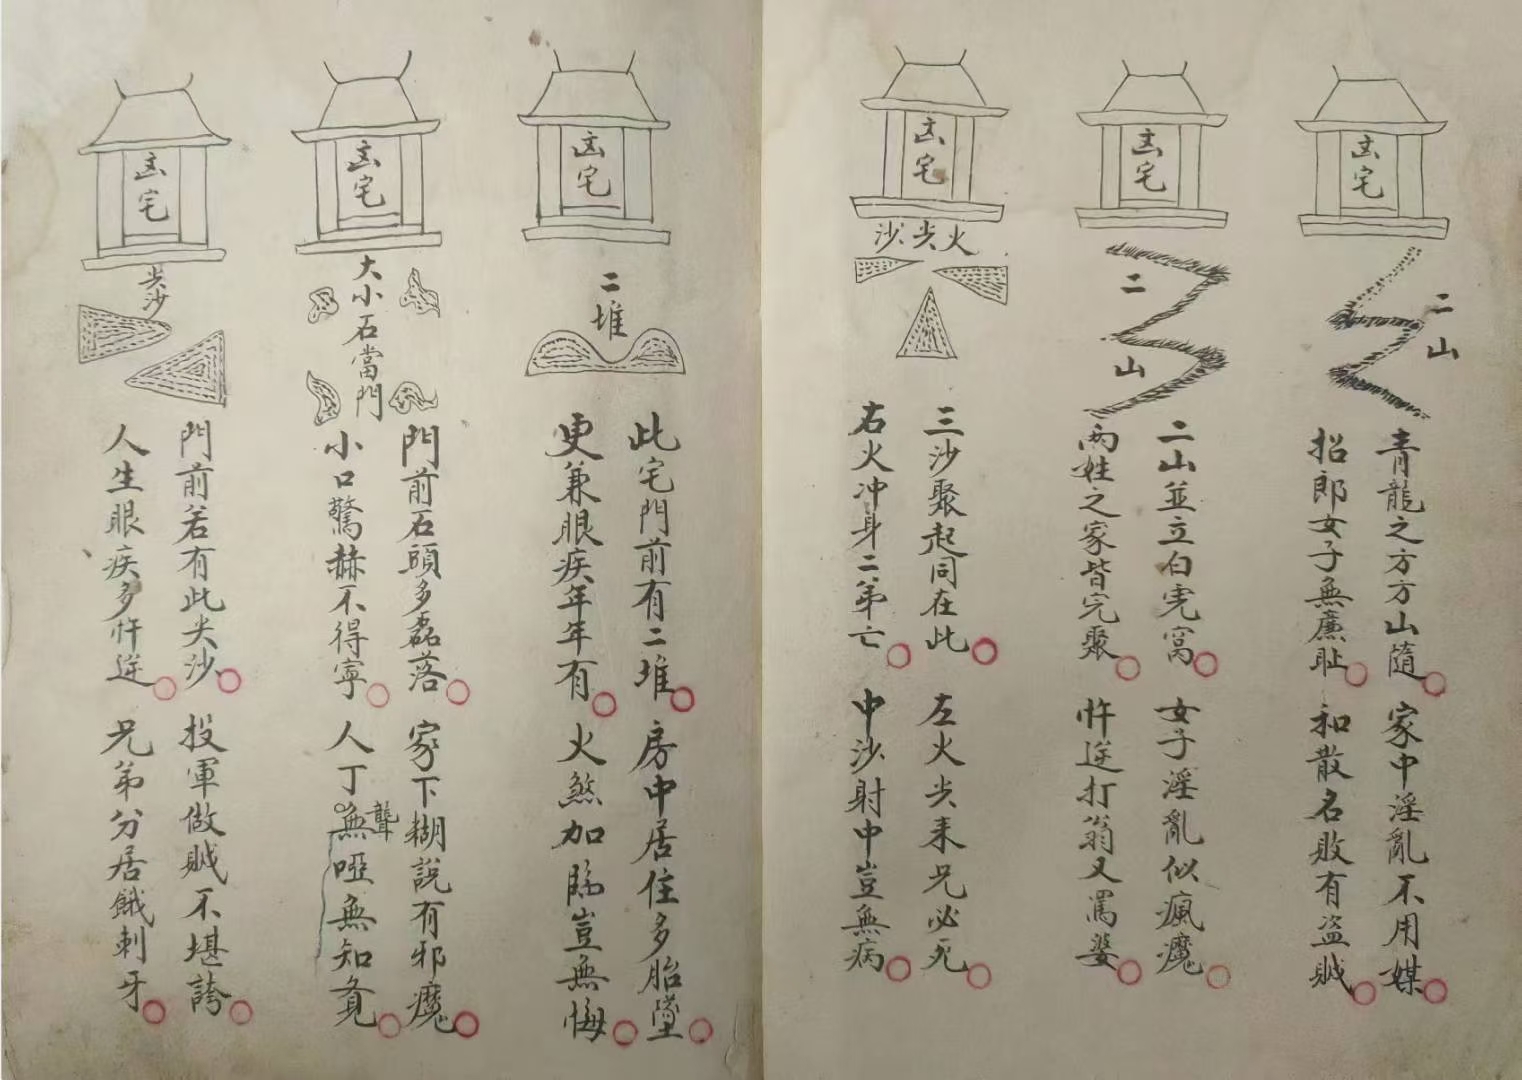 凶宅
二山
青龍之方方山隨
家中淫亂不用媒
招郎女子無廉耻
和散名敗有盗賊
凶宅
二山
二山並立白虎窩
女子淫亂似瘋魔
两姓之家皆完聚
忤逆打翁又罵婆
凶宅
火尖沙
三沙聚起同在此
左火尖来兄必死
右火冲身二弟亡
中沙射中豈無病
凶宅
二堆
此宅門前有二堆
房中居住多胎墜
更兼眼疾年年有
火煞加臨豈無悔
凶宅
大小石當門
門前石頭多磊落
家下糊說有邪魔
小口驚赫不得寧
人丁無啞無知
聾
凶宅
尖沙
門前若有此尖沙
投軍做賊不堪誇
人生眼疾多忤逆
兄弟分居餓刺牙